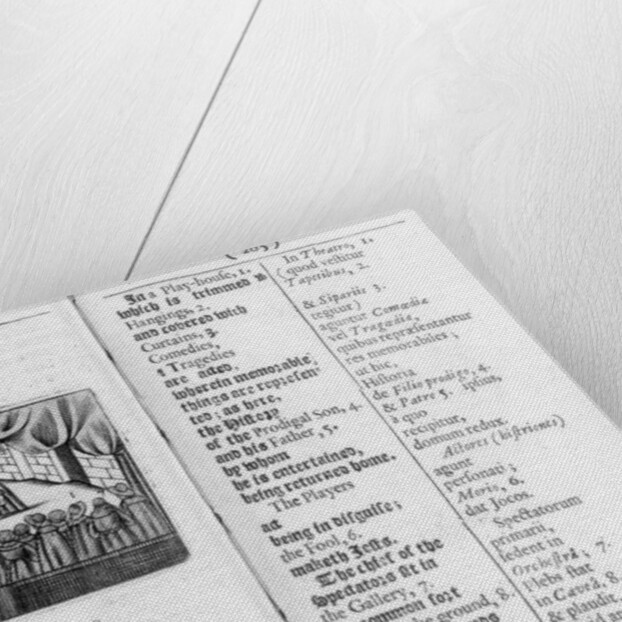 In a Play-houſe, 1.
which is trimmed
Hangings, 2.
and covered with
Curtains, 3.
Comedies,
Tragedies
are acted,
wherein memorable
things are repreſen
ted; as here,
the Hiſtory
of the Prodigal Son, 4.
and his Father, 5.
by whom
he is entertained,
being returned home.
The Players
act
being in diſguiſe;
the Fool, 6.
maketh Jeſts.
The chief of the
Spectators ſit in
the Gallery, 7.
common ſort
the ground, 8.
In Theatro, 1.
(quod veſtitur
Tapetibus, 2.
& Sipariis 3.
tegitur)
aguntur Comœdiæ
vel Tragœdiæ,
quibus repræſentantur
res memorabiles;
ut hic,
Hiſtoria
de Filio prodigo, 4.
& Patre 5. ipſius,
a quo
recipitur,
domum redux.
Actores (hiſtriones)
agunt
perſonati;
Morio, 6.
dat Jocos.
Spectatorum
primarii,
ſedent in
Orcheſtrâ; 7.
Plebs ſtat
in Caveâ, 8.
& plaudit